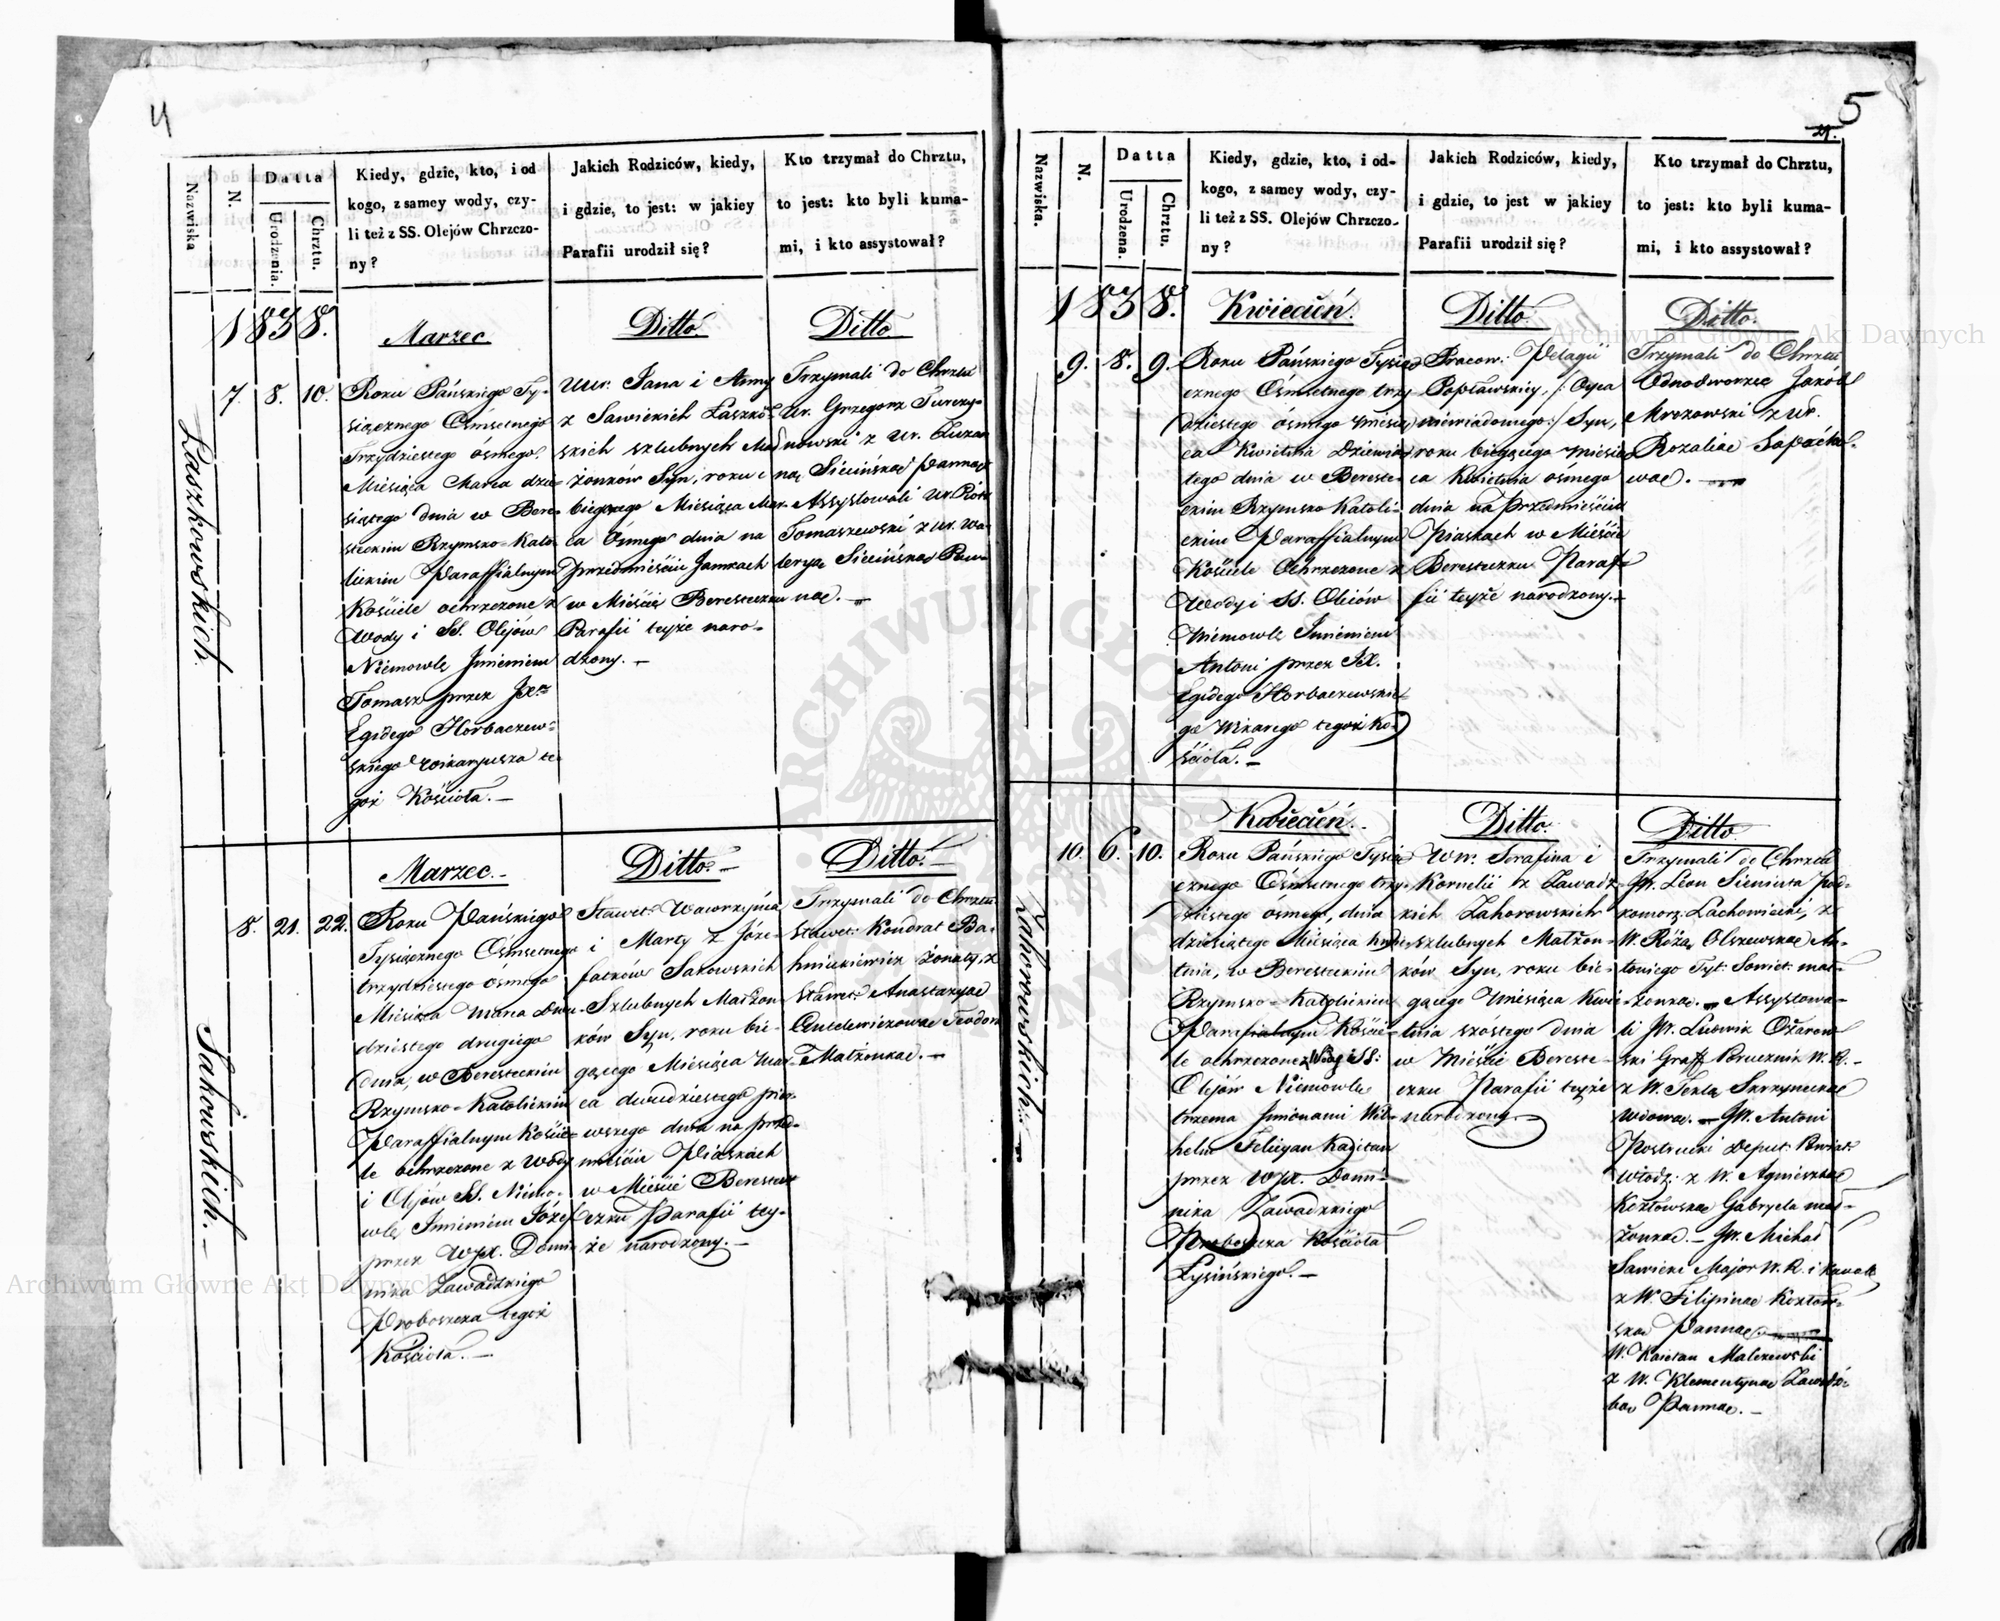 4
Nazwiska
N.
Datta
Urodzenia.
Chrztu.
Kiedy, gdzie, kto, i od
kogo, z samey wody, czy-
li też z SS. Olejów Chrzczo-
ny?
Jakich Rodziców, kiedy,
i gdzie, to jest: w jakiey
Parafii urodził się?
Kto trzymał do Chrztu,
to jest: kto byli kuma-
mi, i kto assystował?
1838.
Marzec
Ditto
Ditto
Łaszkowskich.
7. 8. 10.
Roku Pańskiego Ty-
siącznego Ośmsetnego
Trzydziestego ósmego.
Miesiąca Marca dzie-
siątego dnia w Bere-
steckim Rzymsko-Kato
lickim Paraffialnym
Kościele ochrzczone z
Wody i SS. Olejów
Niemowlę Imieniem
Tomasz przez JX.
Egidego Horbaczew-
skiego wikaryusza te-
goż Kościoła.—
Uur. Jana i Anny
z Sawickich Łaszkow
skich szlubnych Mał
żonków Syn, roku
bieżącego Miesiąca Mar
ca Ósmego dnia na
przedmieściu Zamkach
w Mieście Beresteczku
Parafii teyże naro-
dzony.—
Trzymali do Chrztu
Ur. Grzegorz Turczy-
nowski z Ur. Zuzan
ną Siecińską Panną
Assystowali Ur. Piotr
Tomaszewski z Ur. Wa-
leryą Siecińską Pan-
ną.—
Marzec.—
Ditto.—
Ditto.—
Sakowskich.—
8. 21. 22.
Roku Pańskiego
Tysiącznego Ośmsetnego
trzydziestego ósmego
Miesiąca Marca dwu-
dziestego drugiego
dnia, w Beresteckim
Rzymsko-Katolickim
Paraffialnym Koście-
le ochrzczone z Wody
i Olejów SS. Niemo-
wlę Imieniem Józef
przez WJX. Domi-
nika Zawadzkiego
Proboszcza tegoż
Kościoła.—
Sławet. Wawrzyńca
i Marty z Józe-
faczów Sakowskich
Szlubnych Małżon-
ków Syn, roku bie-
żącego Miesiąca Mar-
ca dwudziestego pier-
wszego dnia na przed-
mieściu Piaskach
w Mieście Berestecz
czku Parafii tey-
że narodzony.—
Trzymali do Chrztu
Sławet. Kondrat
żonaty, z
Sławet. Anastazyą
Teodora
Małżonką.—
5
Nazwiska.
N.
Datta
Urodzena.
Chrztu.
Kiedy, gdzie, kto, i od-
kogo, z samey wody, czy-
li też z SS. Olejów Chrzczo-
ny?
Jakich Rodziców, kiedy,
i gdzie, to jest w jakiey
Parafii urodził się?
Kto trzymał do Chrztu,
to jest: kto byli kuma-
mi, i kto assystował?
1838.
Kwiecień.
Ditto.
Ditto.
9. 8. 9.
Roku Pańskiego Tysią
cznego Ośmsetnego trzy-
dziestego ósmego Miesią
ca Kwietnia Dziewią
tego dnia w Bereste-
ckim Rzymsko Katoli-
ckim Paraffialnym
Kościele Ochrzczone z
Wody i SS. Olejów
Niemowle Imieniem
Antoni przez JX.
Egidego Horbaczewskie
go Wikarego tegoż Ko-
ścioła.—
Pracow. Pelagii
Popławskiey, /: Oyca
niewiadomego :/ Syn,
roku bieżącego Miesią
ca Kwietnia ósmego
dnia na Przedmieściu
Piaskach w Mieście
Beresteczku Paraf-
fii teyże narodzony.—
Trzymali do Chrztu
Odnodworzec Jakób
Mrozowski z Ur.
Rozalią
Kwiecień.
Ditto.
Ditto
Zahorowskich.—
10. 6. 10.
Roku Pańskiego Tysią
cznego Ośmsetnego trzy-
dziestego ósmego, dnia
dziesiątego Miesiąca Kwie-
tnia, w Beresteckim
Rzymsko-Katolickim
Parafialnym Koście-
le ochrzczone z Wody i SS:
Olejów Niemowle
trzema Imionami Wil-
helm Felicyan Kajetan
przez WJX. Domi-
nika Zawadzkiego
Proboszcza Kościoła
Łysińskiego.—
WW. Serafina i
Kornelii z Zawadz-
kich Zahorowskich
szlubnych Małżon-
ków Syn, roku bie-
żącego Miesiąca Kwie
tnia szóstego dnia
w Mieście Bereste-
czku Parafii teyże
narodzony.
Trzymali do Chrztu
JW. Leon Sieniuta Pod-
komorz: Lachowiecki, z
W. Różą Olszewską An-
toniego Tyt. Sowiet. mał-
żonką.— Assystowa-
li JW. Ludwik Ożarow
ski Graff Porucznik W. R.—
z W. Teklą Skrzynecką
Wdową.— JW. Antoni
Deput. Powiat.
Włodz. z W. Agnieszką
Kozłowską Gabryela mał-
żonką.— JW. Michał
Sawicki Major W. R. i Kawale
z W. Filipiną Kozłow-
ską Panną.
W. Kaietan Malczewski
z W. Klementyną Zawadz-
ką Panną.—
Archiwum Główne Akt Dawnych
Archiwum Główne Akt Dawnych
ARCHIWUM GŁÓWNE AKT DAWNYCH